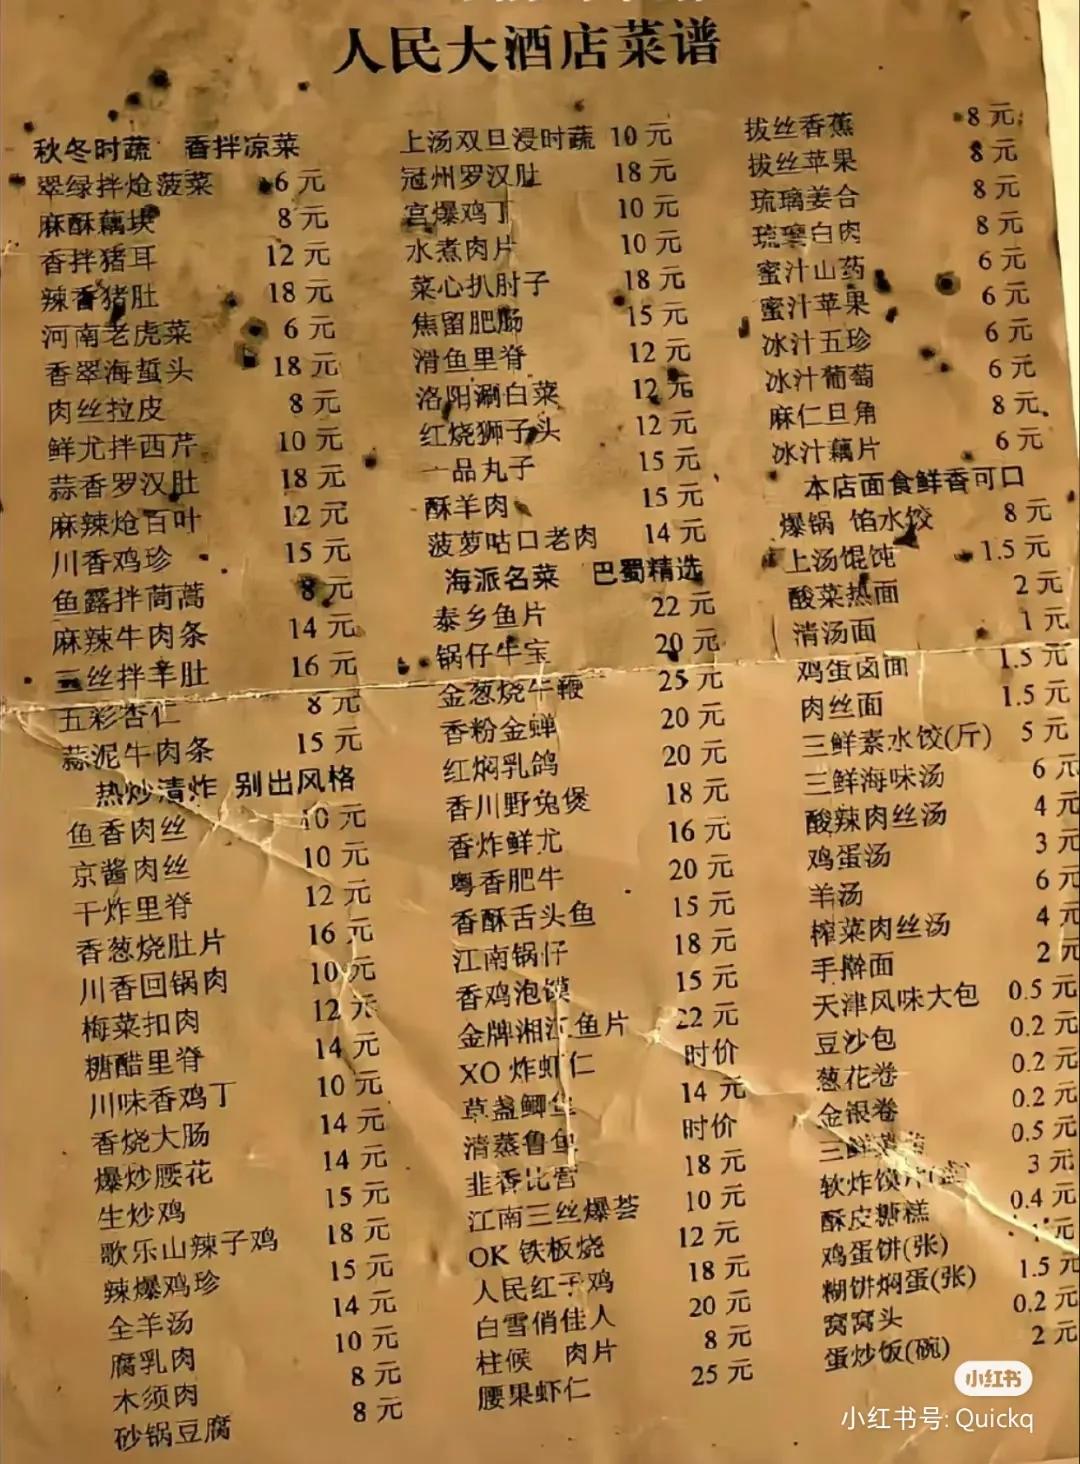 人民大酒店菜谱
秋冬时蔬 香拌凉菜
翠绿拌炝菠菜 6元
麻酥藕块 8元
香拌猪耳 12元
辣香猪肚 18元
河南老虎菜 6元
香翠海蜇头 18元
肉丝拉皮 8元
鲜尤拌西芹 10元
蒜香罗汉肚 18元
麻辣炝百叶 12元
川香鸡珍 15元
鱼露拌茼蒿 8元
麻辣牛肉条 14元
三丝拌羊肚 16元
五彩杏仁 8元
蒜泥牛肉条 15元
热炒清炸 别出风格
鱼香肉丝 10元
京酱肉丝 10元
干炸里脊 12元
香葱烧肚片 16元
川香回锅肉 10元
梅菜扣肉 12元
糖醋里脊 14元
川味香鸡丁 10元
香烧大肠 14元
爆炒腰花 14元
生炒鸡 15元
歌乐山辣子鸡 18元
辣爆鸡珍 15元
全羊汤 14元
腐乳肉 10元
木须肉 8元
砂锅豆腐 8元
上汤双旦浸时蔬 10元
冠州罗汉肚 18元
宫爆鸡丁 10元
水煮肉片 10元
菜心扒肘子 18元
焦留肥肠 15元
滑鱼里脊 12元
洛阳涮白菜 12元
红烧狮子头 12元
一品丸子 15元
酥羊肉 15元
菠萝咕口老肉 14元
海派名菜 巴蜀精选
泰乡鱼片 22元
锅仔牛宝 20元
金葱烧牛鞭 25元
香粉金蝉 20元
红焖乳鸽 20元
香川野兔煲 18元
香炸鲜尤 16元
粤香肥牛 20元
香酥舌头鱼 15元
江南锅仔 18元
香鸡泡馍 15元
金牌湘江鱼片 22元
XO炸虾仁 时价
草盏鲫鱼 14元
清蒸鲁鱼 时价
韭香比管 18元
江南三丝爆荟 10元
OK铁板烧 12元
人民红子鸡 18元
白雪俏佳人 20元
柱候 肉片 8元
腰果虾仁 25元
拔丝香蕉 8元
拔丝苹果 8元
琉璃姜合 8元
琉璃白肉 8元
蜜汁山药 6元
蜜汁苹果 6元
冰汁五珍 6元
冰汁葡萄 6元
麻仁旦角 8元
冰汁藕片 6元
本店面食鲜香可口
爆锅 馅水饺 8元
上汤馄饨 1.5元
酸菜热面 2元
清汤面 1元
鸡蛋卤面 1.5元
肉丝面 1.5元
三鲜素水饺(斤) 5元
三鲜海味汤 6元
酸辣肉丝汤 4元
鸡蛋汤 3元
羊汤 6元
榨菜肉丝汤 4元
手擀面 2元
天津风味大包 0.5元
豆沙包 0.2元
葱花卷 0.2元
金银卷 0.2元
三鲜 0.5元
软炸馍片 3元
酥皮糖糕 0.4元
鸡蛋饼(张) 1元
糊饼焖蛋(张) 1.5元
窝窝头 0.2元
蛋炒饭(碗) 2元
小红书
小红书号: Quickq